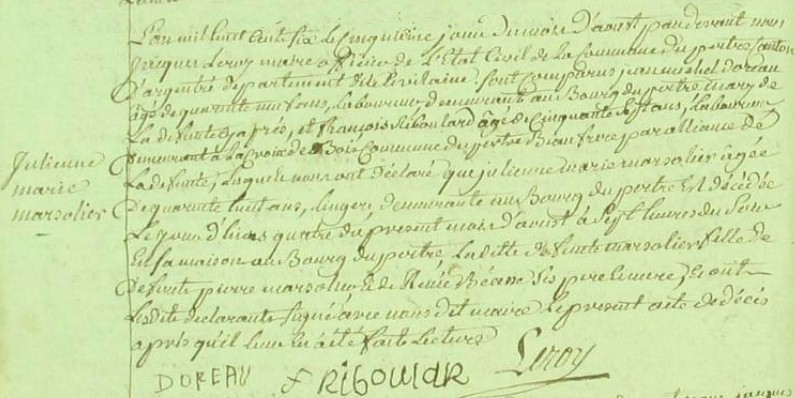 L'an mil huit cent six le cinquieme jour du mois d'aoust pardevant nous
Jacques Leroy maire officier de L'Etat Civil de La Commune du pertre Canton
D'argentré departement d'ile et vilaine, sont comparus jean michel Doreau
âgé de quarante neuf ans, Laboureur, demeurant au Bourg du pertre mary de
La defunte cy après, et françois Riboulard âgé de Cinquante sept ans, Laboureur
demeurant à La Croix de Bois Commune du pertre Beau frere par alliance de
La defunte, lesquels nous ont déclaré que julienne marie marsolier agée
De quarante huit ans, lingere, demeurante au Bourg du pertre Est décédée
Le jour d'hier quatre du present mois d'aoust à Sept heures du Soir
En sa maison au Bourg du pertre, La ditte defunte marsolier fille de
Defunts pierre marsolier et de Renée Béasse ses pere et mere, et ont
Les dits declarants signé avec nous dit maire Le present acte de décès
après qu'il leur en a été faite Lecture
Julienne
marie
marsolier
DOREAU f RiBOULAR Leroy